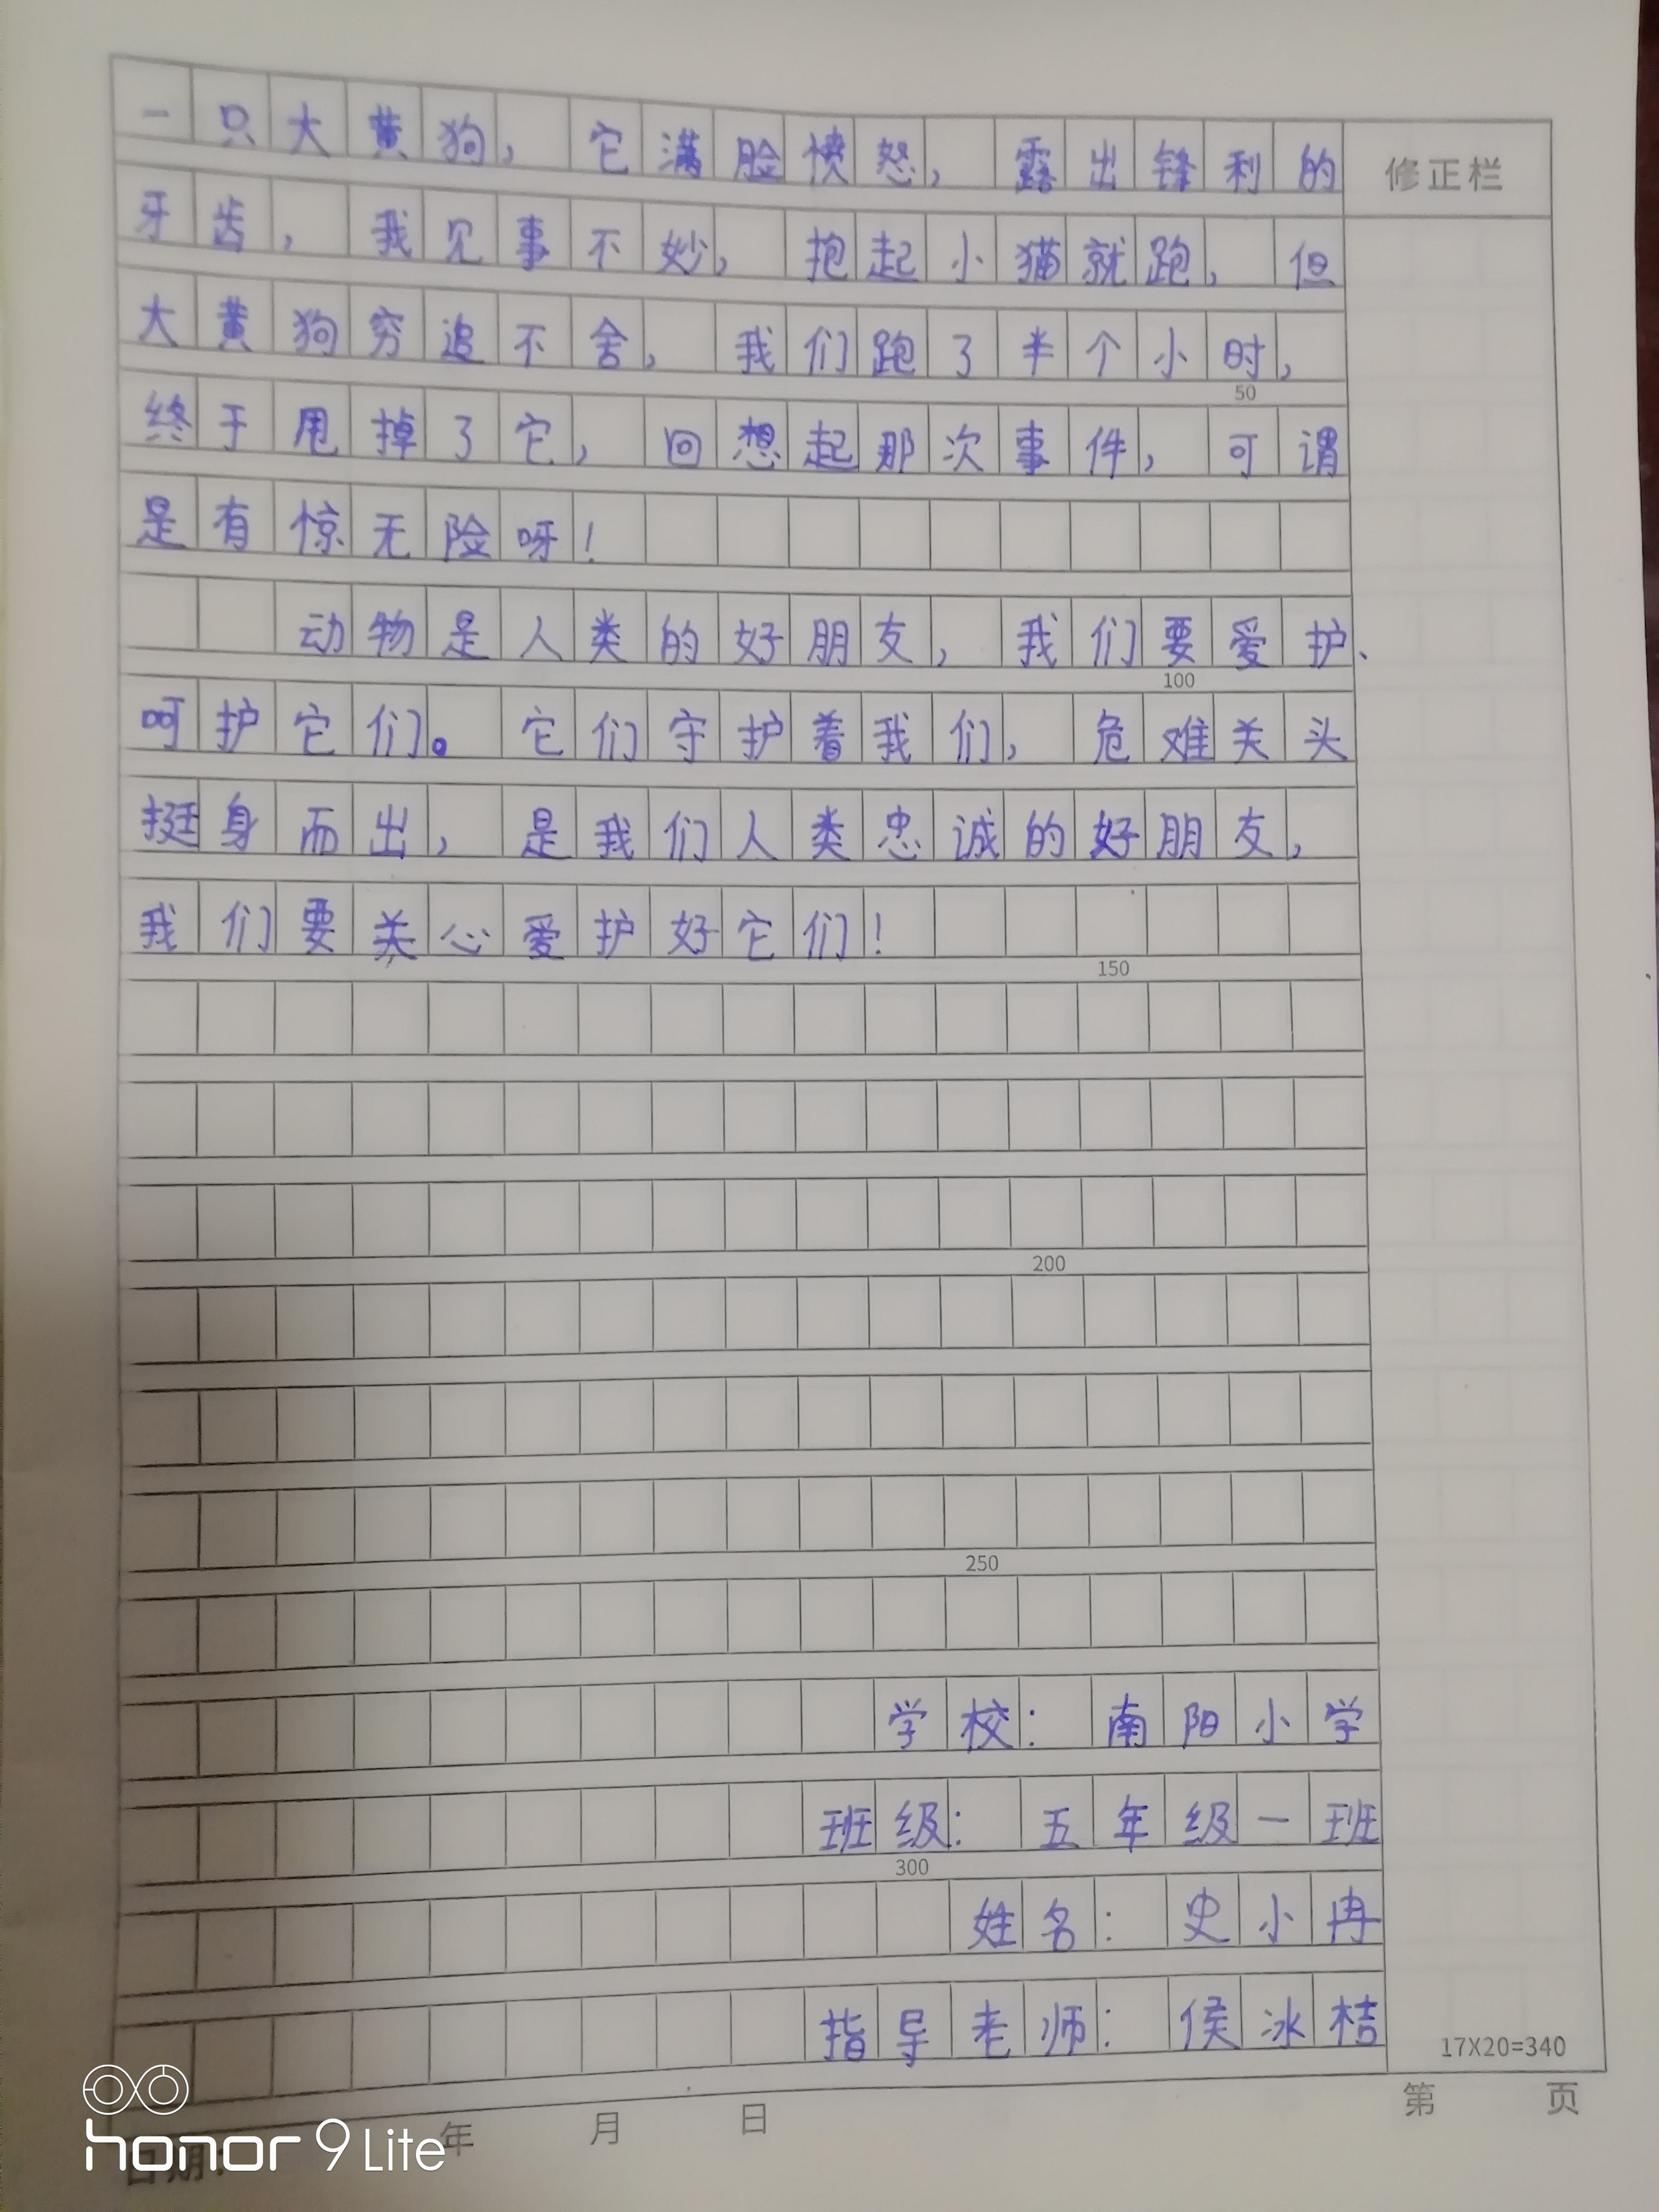 一只大黄狗，它满脸愤怒，露出锋利的
修正栏
牙齿，我见事不妙，抱起小猫就跑，但
大黄狗穷追不舍，我们跑了半个小时，
50
终于甩掉了它，回想起那次事件，可谓
是有惊无险呀！
动物是人类的好朋友，我们要爱护、
100
呵护它们。它们守护着我们，危难关头
挺身而出，是我们人类忠诚的好朋友，
我们要关心爱护好它们！
150
200
250
学校：南阳小学
班级：五年级一班
300
姓名：史小冉
指导老师：侯冰桔
17X20=340
第 页
日期： 年 月 日
honor 9 Lite